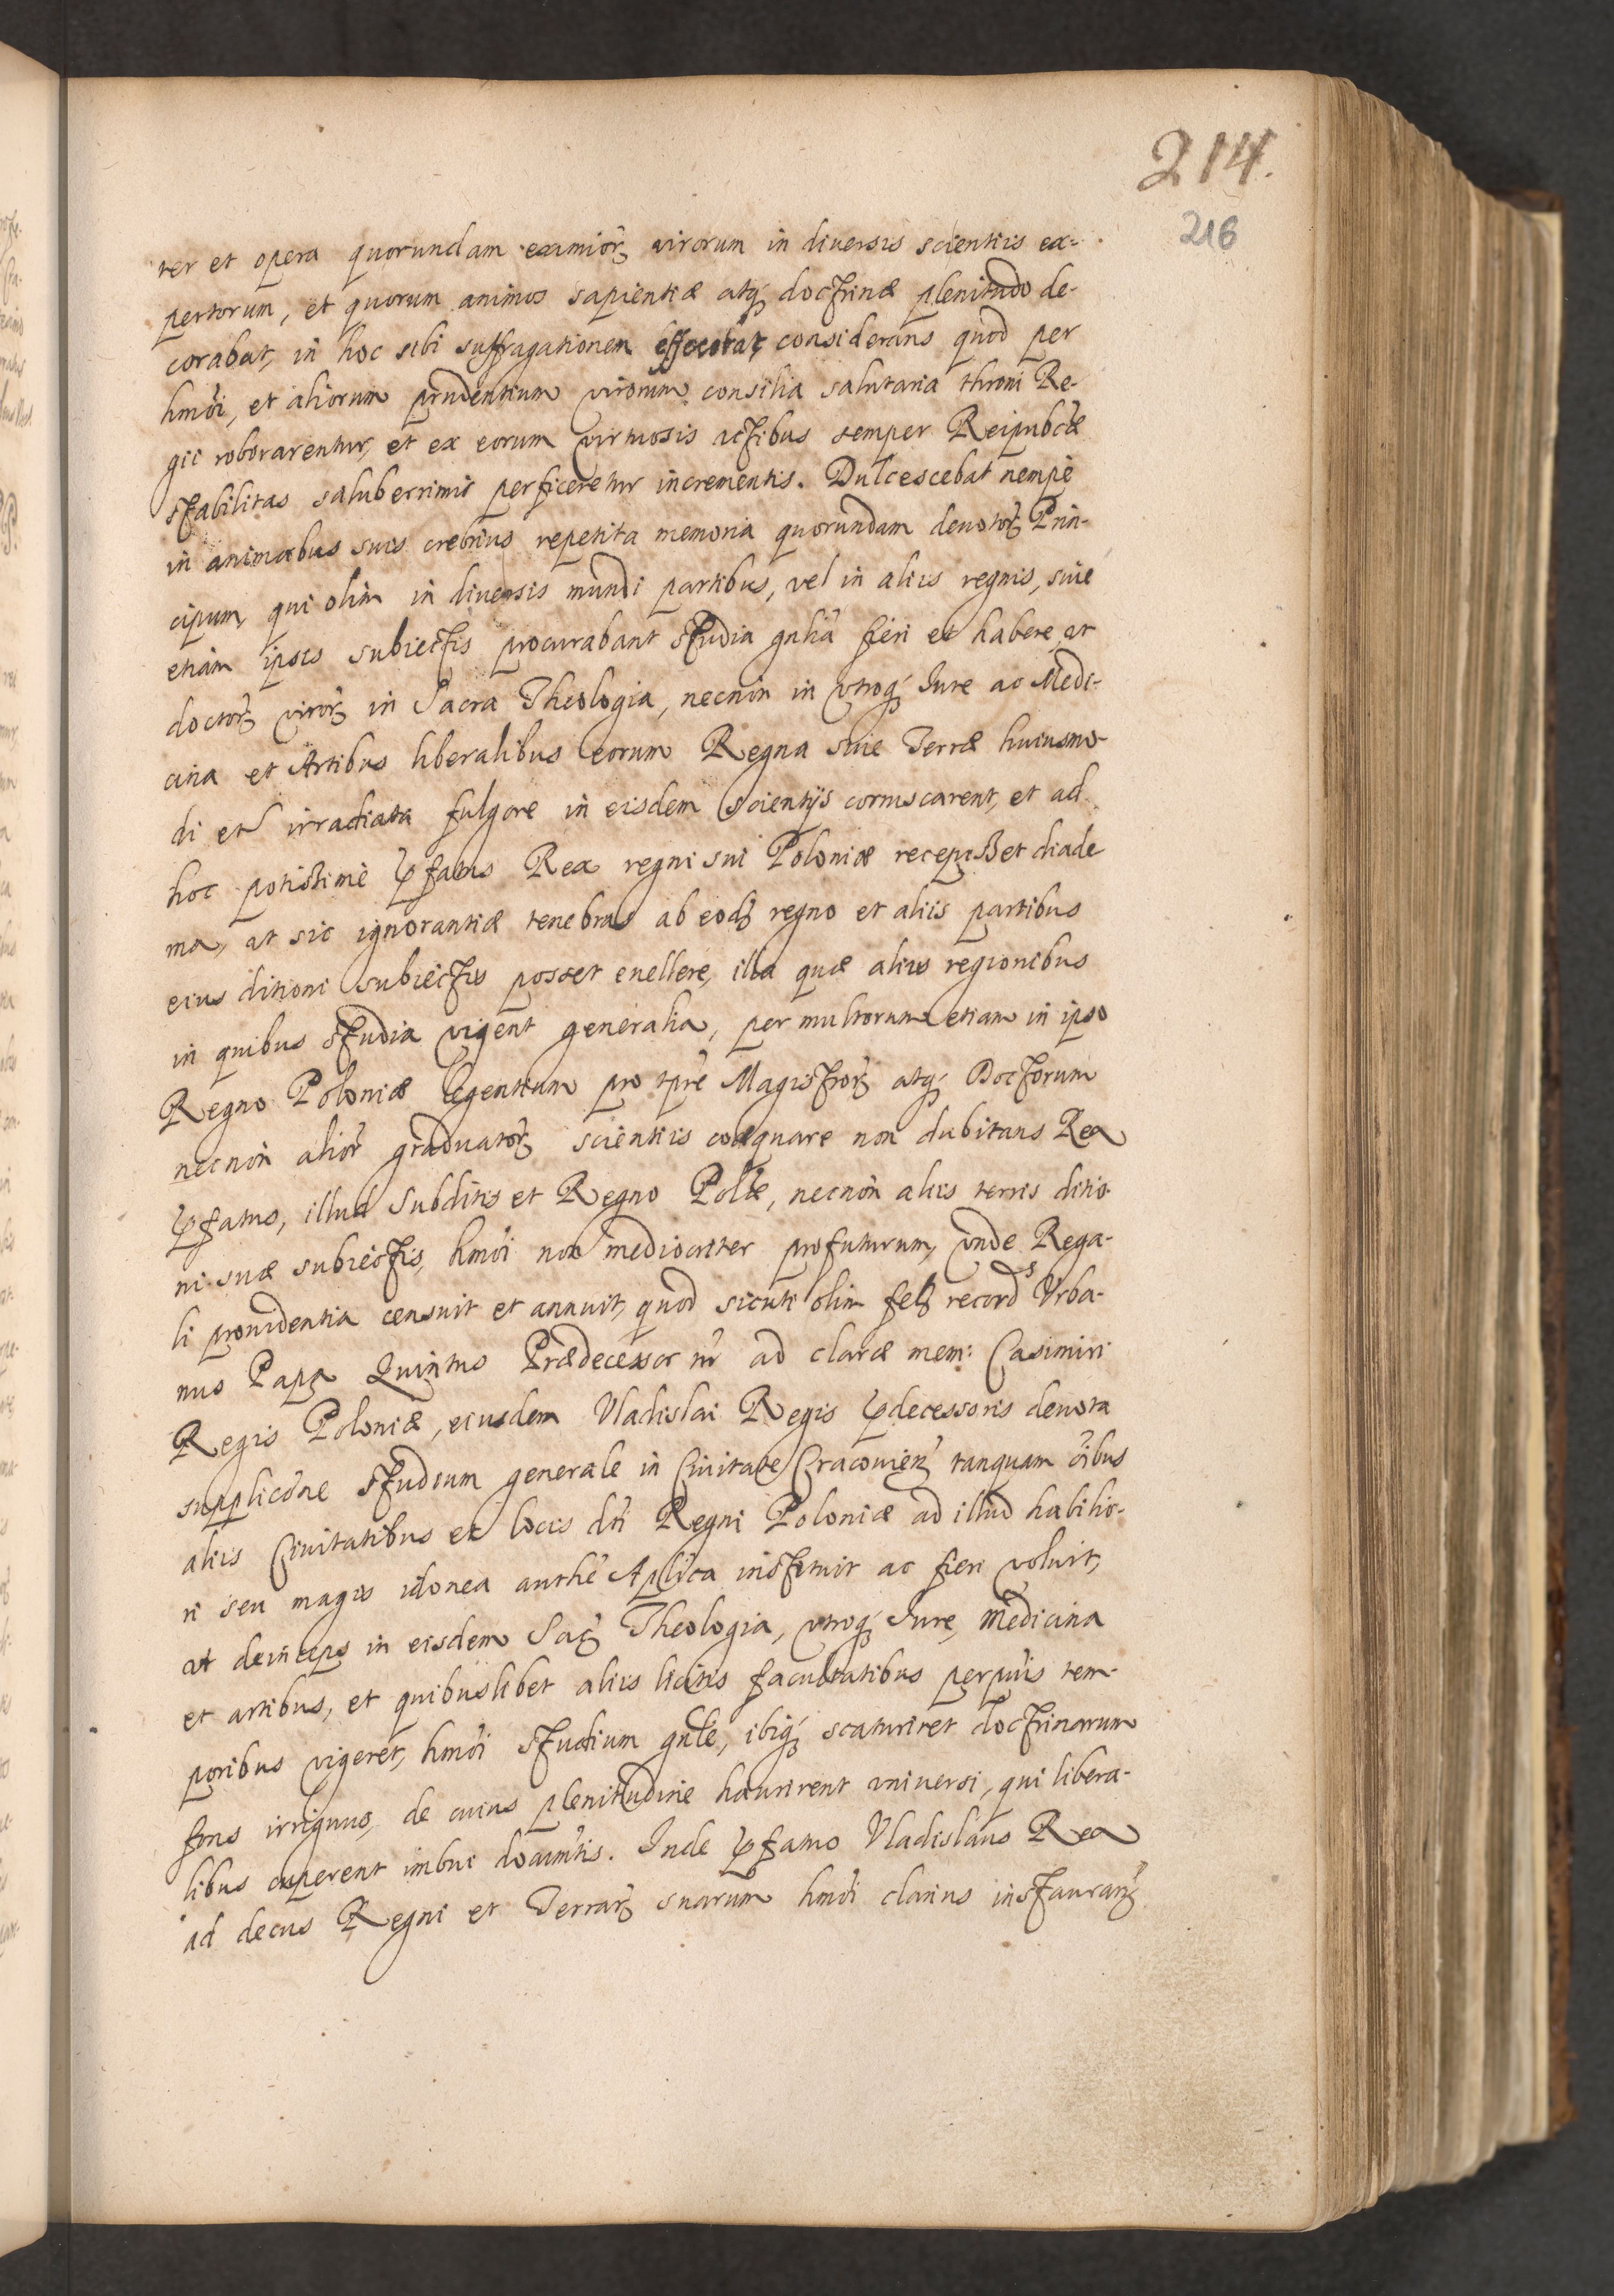 214.
216
ter et opera quorundam eximior̃ virorum in diuersis scientiis ex-
pertorum, et quorum animos sapientiæ atq́ꝫ doctrinæ plenitudo de-
corabat, in hoc sibi suffragationem considerans quod per
hmõi, et aliorum prudentium virorum consilia salutaria throni Re-
gii roborarentur, et ex eorum virtuosis actibus semper Reipubcæ
stabilitas saluberrimis perficeretur incrementis. Dulcescebat nempè
in animabus suis crebrius repetita memoria quorundam deuotor̃ Prin-
cipum, qui olim in diuersis mundi partibus, vel in aliis regnis, siue
etiam ipsis subiectis procurabant studia gnlia fieri et habere, ut
doctor̃ viror̃ in Sacra Theologia, necnòn in vtroq́ꝫ Iure ac Medi-
cina et Artibus liberalibus eorum Regna siue Terræ huiusmo-
di et irradiata fulgore in eisdem scientijs coruscarent, et ad
hoc potissimè p̃fatus Rex regni sui Poloniæ recepisset diade
ma, ut sic ignorantiæ tenebras ab eodꝫ regno et aliis partibus
eius ditioni subiectis posset euellere, illa quæ aliis regionibus
in quibus studia vigent generalia, per multorum etiam in ipso
Regno Poloniæ legentium pro tpre Magistror̃ atq́ꝫ Doctorum
necnòn alior̃ graduator̃ scientiis coæquare non dubitans Rex
p̃fatus, illud subditis et Regno Polæ, necnòn aliis terris ditio-
ni suæ subiectis, hmõi non mediocriter profuturum, vnde Rega-
li prouidentia censuit et annuit, quod sicuti olim felꝫ records Vrba-
nus Papa Quintus Prædecessor nr̃ ad claræ mem: Casimiri
Regis Poloniæ, eiusdem Vladislai Regis p̃decessoris deuota
supplicõne studium generale in Ciuitate Cracouien̄ tanquam õibus
aliis Ciuitatibus et locis dti Regni Poloniæ ad illud habilio-
ri seu magis idonea authe Aplica instituit ac fieri voluit,
ut deinceps in eisdem Sac̃ Theologia, vtroq́ꝫ Iure, Medicina
et artibus, et quibuslibet aliis licitis facultatibus perpuis tem-
poribus vigeret, hmõi studium gnle, ibiq́ꝫ scaturiret doctrinarum
fons irriguus, de cuius plenitudine haurirent vniuersi, qui libera-
libus cuperent imbui docum̃tis. Inde p̃fatus Vladislaus Rex
ad decus Regni et Terrar̃ suarum hmõi clarius instaurañ